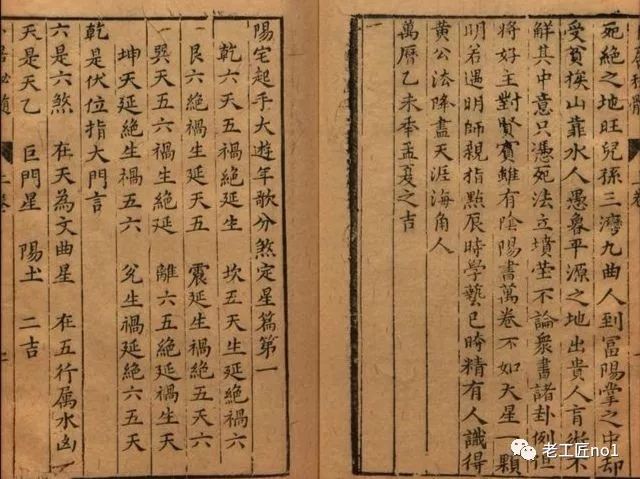 死絶之地旺兒孫三灣九曲人到富陽掌之中却
受貧挨山靠水人愚魯平源之地出貴人肓術不
解其中意只憑死法立墳塋不論衆書諸卦例但
將好主對賢賓雖有陰陽書萬卷不如天星一顆
明若遇明師親指點辰時學藝巳時精有人識得
黄公法降盡天涯海角人
萬曆乙未季孟夏之吉
一
陽宅起手大遊年歌分煞定星篇第一
乾六天五禍絶延生 坎五天生延絶禍六
艮六絶禍生延天五 震延生禍絶五天六
巽天五六禍生絶延 離六五絶延禍生天
坤天延絶生禍五六 兌生禍延絶六五天
乾是伏位指大門言
六是六煞 在天為文曲星 在五行属水凶
天是天乙 巨門星 陽土 二吉
上卷
老工匠no1